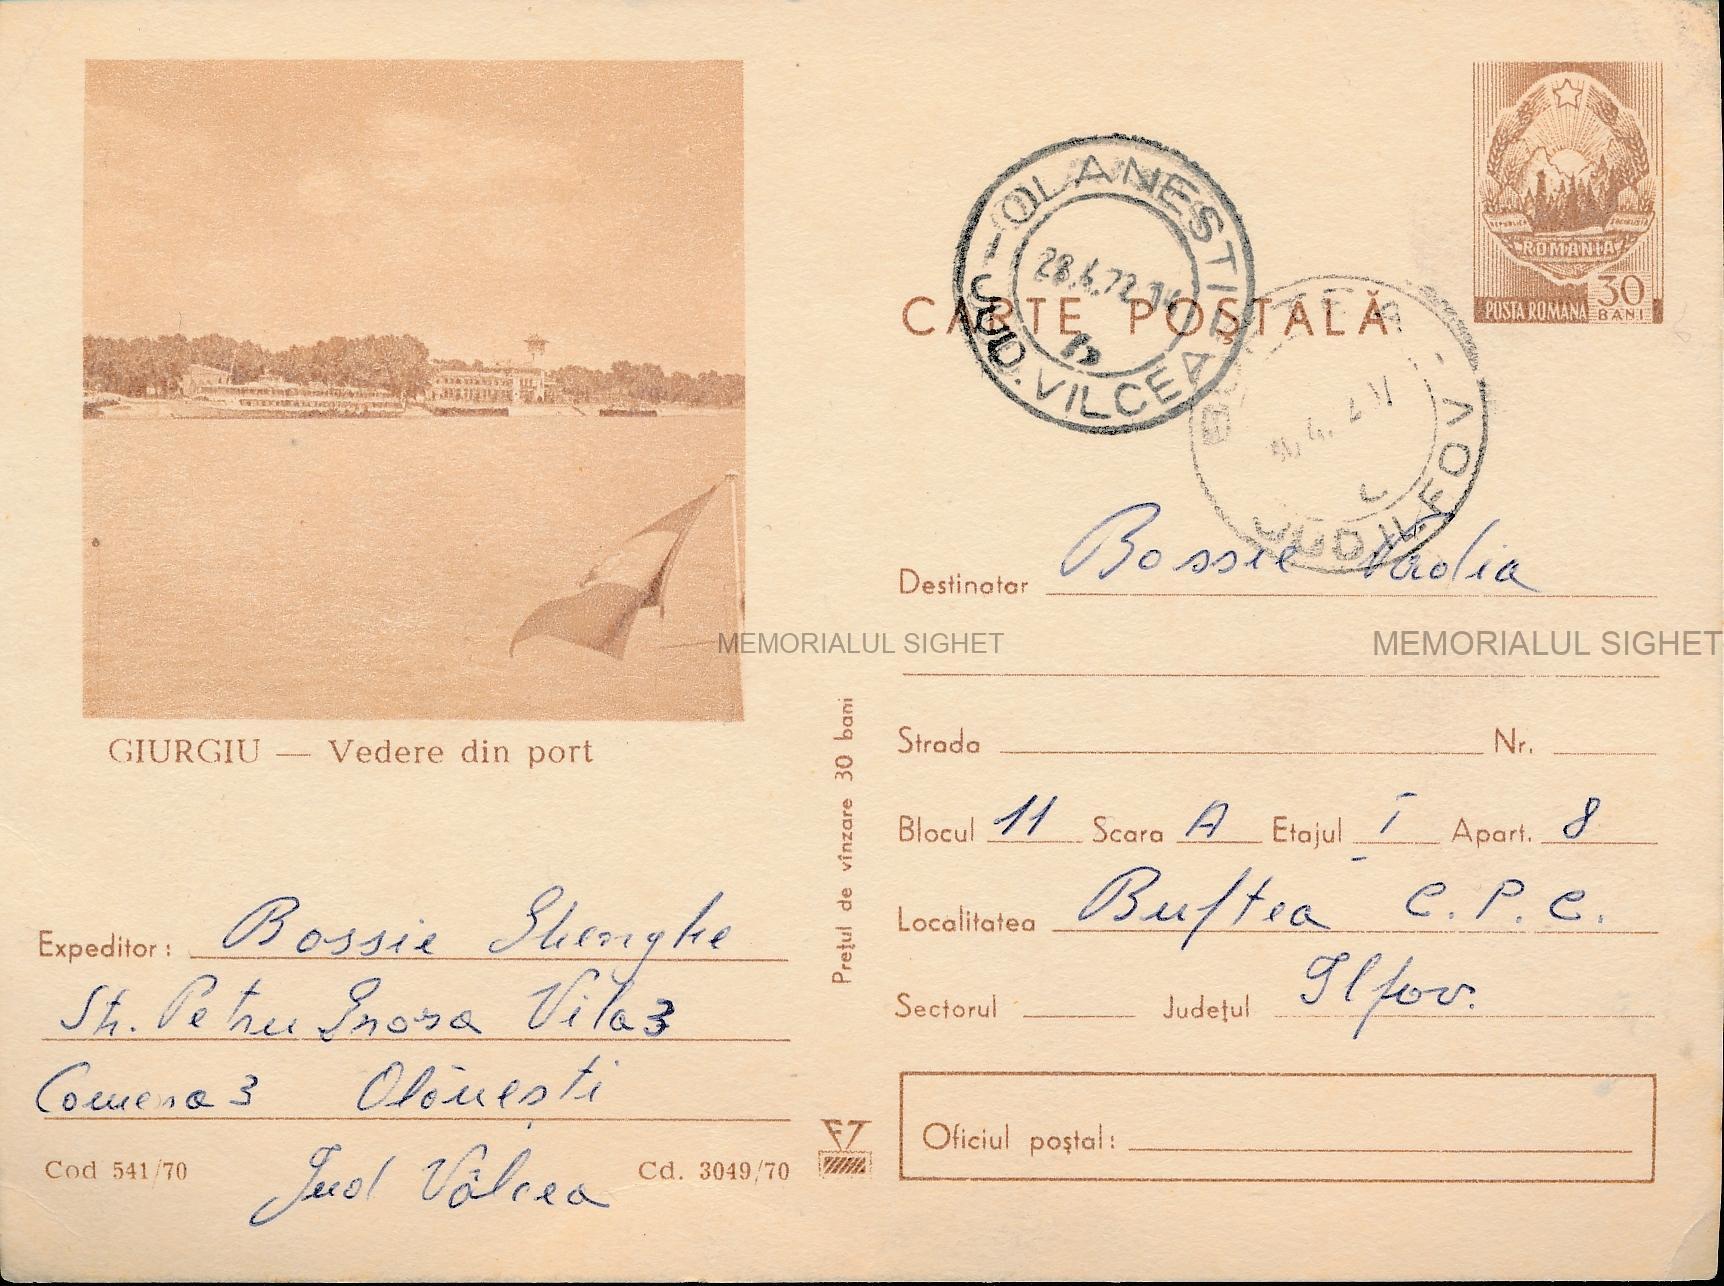 POSTA ROMANA 30 BANI
ROMANIA
OLANESTI
JUD. VILCEA
28.4.72.14
CARTE POȘTALĂ
JUD ILFOV
GIURGIU — Vedere din port
Prețul de vînzare 30 bani
Destinatar Bossie Nadia
MEMORIALUL SIGHET
MEMORIALUL SIGHET
Strada Nr.
Blocul 11 Scara A Etajul I Apart. 8
Localitatea Buftea C.P.C.
Sectorul Județul Ilfov.
Oficiul poștal:
Expeditor: Bossie Ghenghe
Str. Petru Vila 3
Camera 3 Olănești
Jud Vâlcea
Cod 541/70
Cd. 3049/70